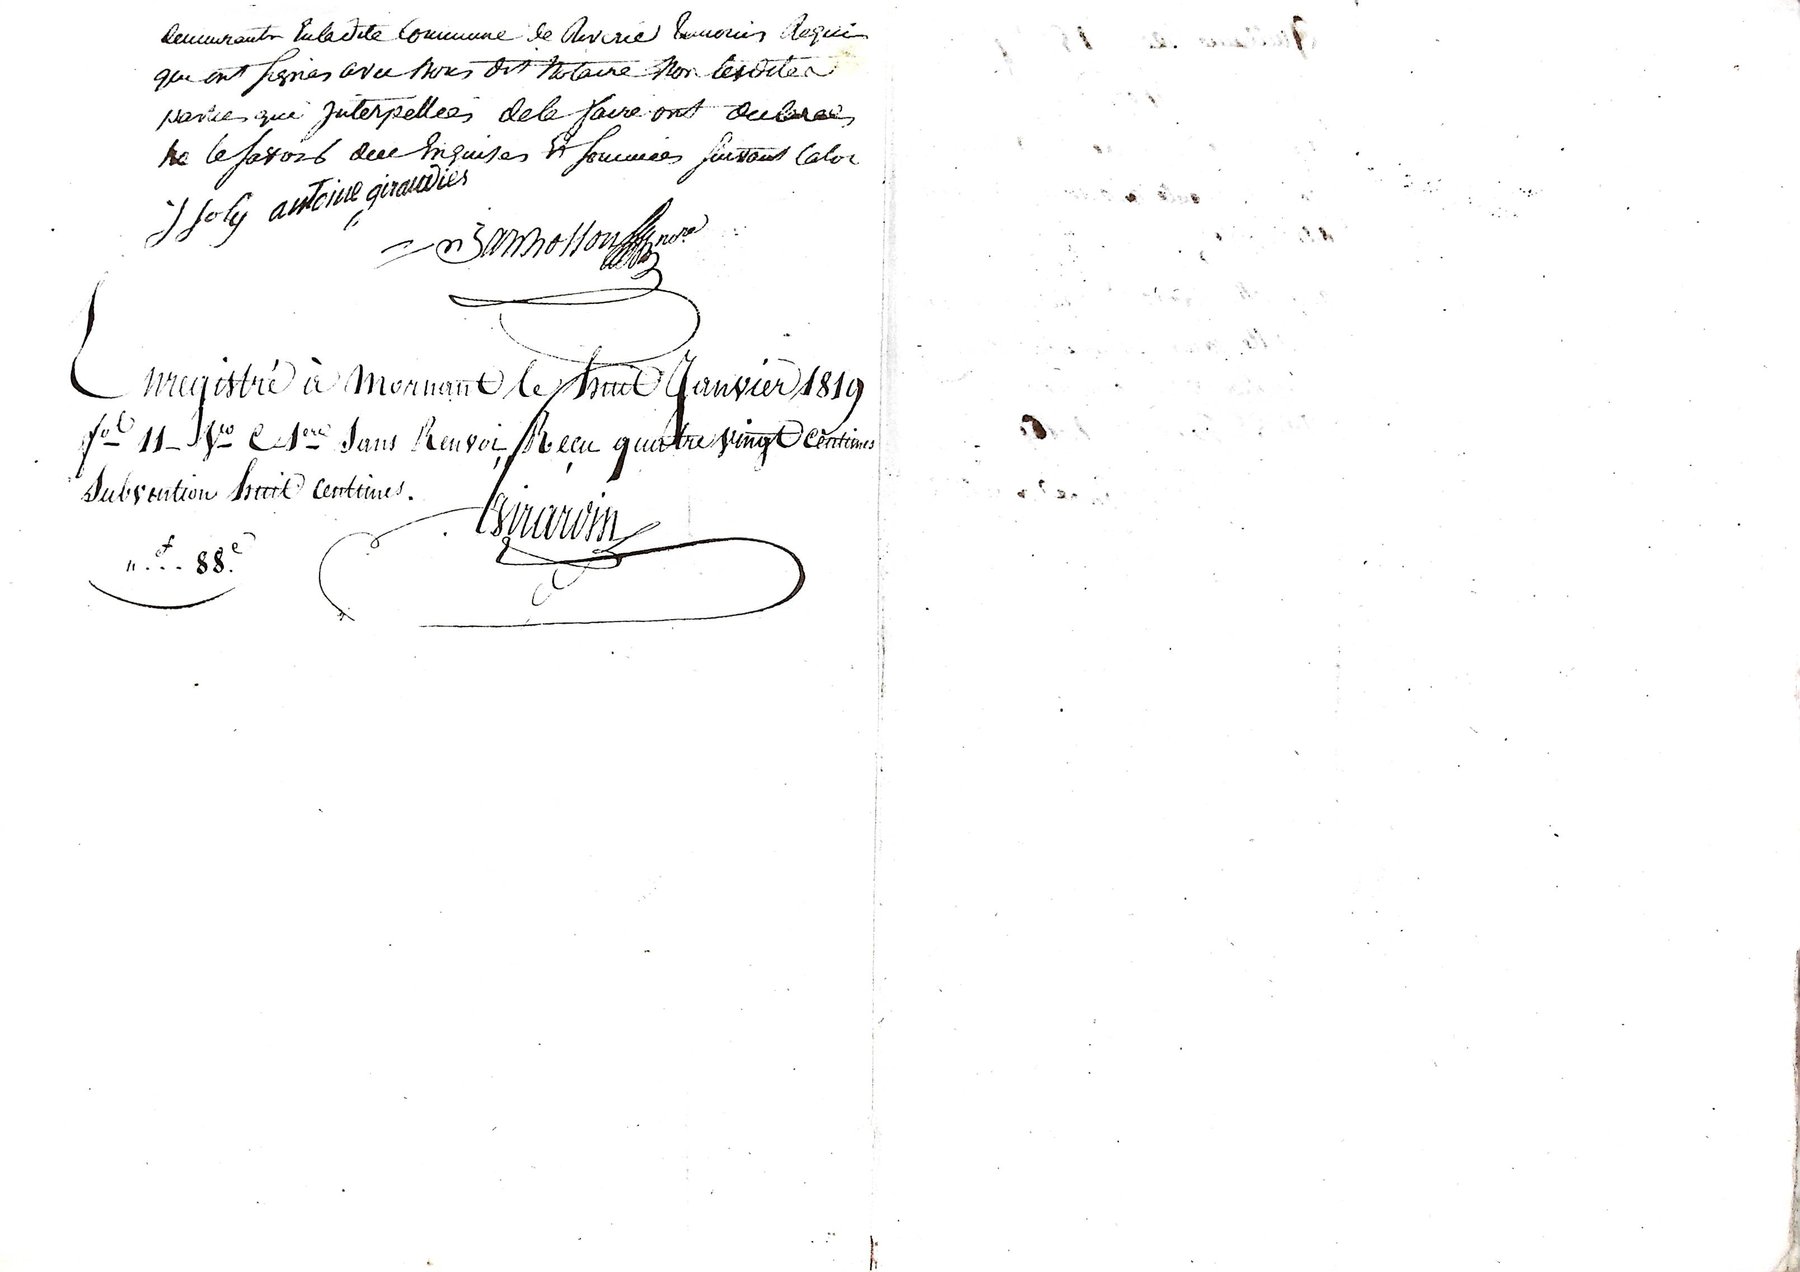 demeurants Enladite Commune de Riverie temoins Requis
qui ont signes avec Nous dit Notaire Non lesdites
parties qui Interpellées dele faire ont declarées
ne le savoir due Enquises Et sommées suivant laloi
J Joly antoine giraudier
nore
Enregistré à Mornant le huit Janvier 1819
fol 11 Vo C 1ere Sans Renvoi, Reçu quatre vingt centimes
Subvention huit centimes.
Girardin
88c